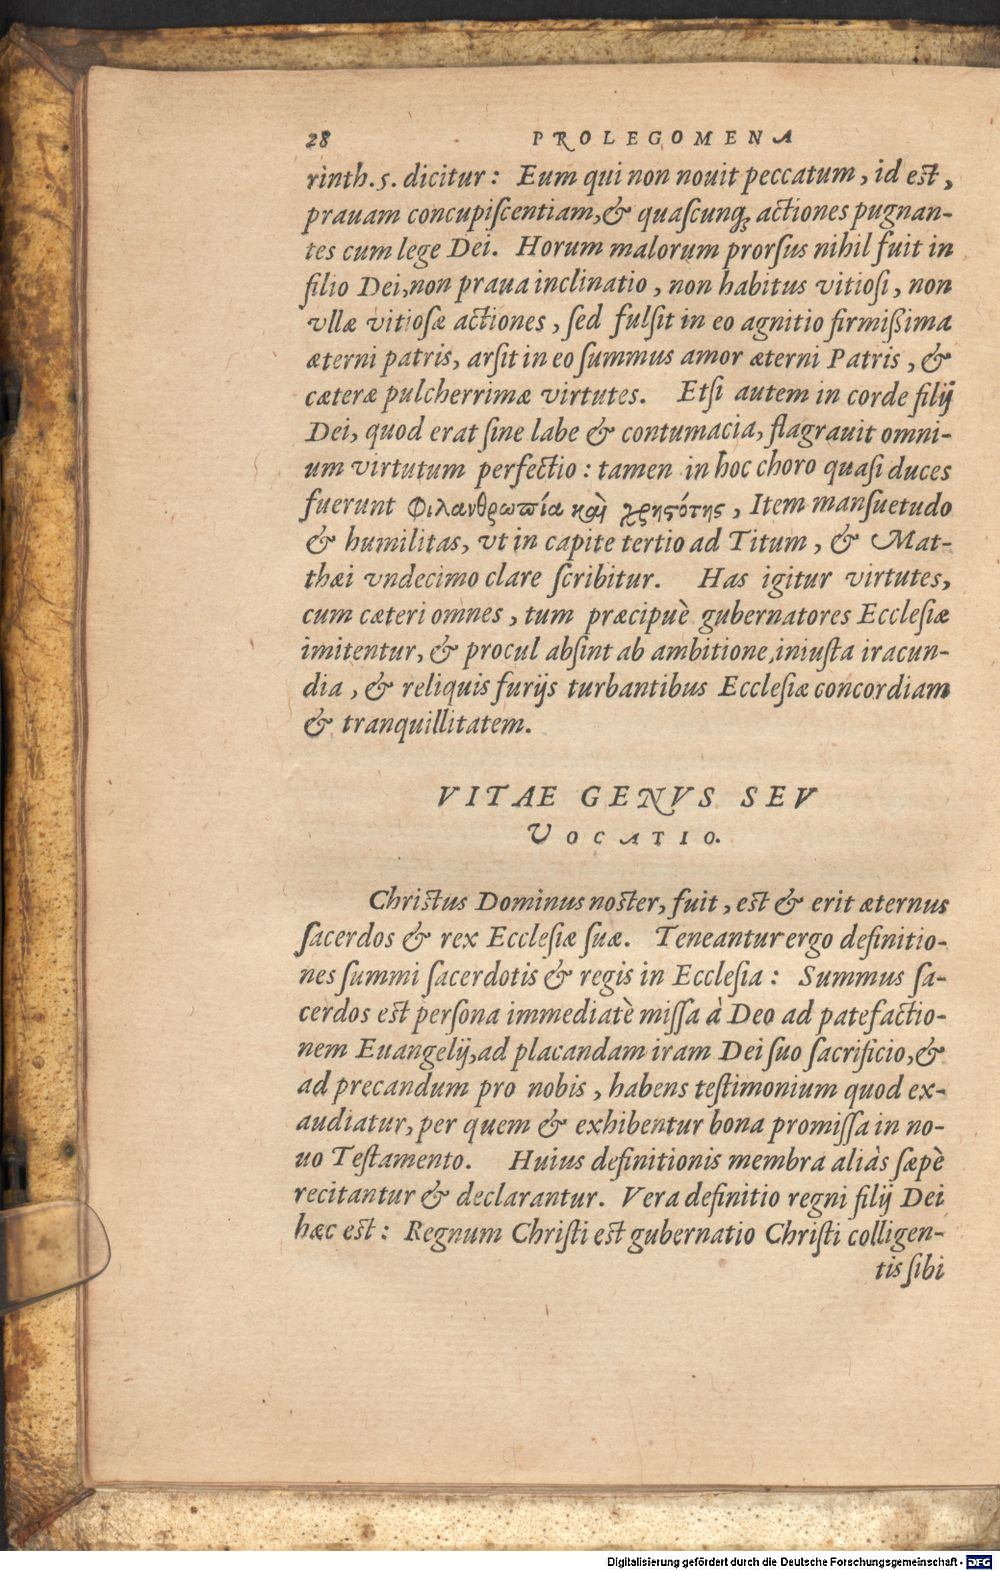 28 PROLEGOMENA
rinth. 5. dicitur: Eum qui non nouit peccatum, id est,
prauam concupiscentiam, & quascunq; actiones pugnan-
tes cum lege Dei. Horum malorum prorsus nihil fuit in
filio Dei, non praua inclinatio, non habitus vitiosi, non
vllæ vitiosæ actiones, sed fulsit in eo agnitio firmißima
æterni patris, arsit in eo summus amor æterni Patris, &
cæteræ pulcherrimæ virtutes. Etsi autem in corde filij
Dei, quod erat sine labe & contumacia, flagrauit omni-
um virtutum perfectio: tamen in hoc choro quasi duces
fuerunt Φιλανθρωπία καὶ χρηστότης, Item mansuetudo
& humilitas, vt in capite tertio ad Titum, & Mat-
thæi vndecimo clare scribitur. Has igitur virtutes,
cum cæteri omnes, tum præcipuè gubernatores Ecclesiæ
imitentur, & procul absint ab ambitione, iniusta iracun-
dia, & reliquis furijs turbantibus Ecclesiæ concordiam
& tranquillitatem.
VITAE GENVS SEV
VOCATIO.
Christus Dominus noster, fuit, est & erit æternus
sacerdos & rex Ecclesiæ suæ. Teneantur ergo definitio-
nes summi sacerdotis & regis in Ecclesia: Summus sa-
cerdos est persona immediatè missa à Deo ad patefactio-
nem Euangelij, ad placandam iram Dei suo sacrificio, &
ad precandum pro nobis, habens testimonium quod ex-
audiatur, per quem & exhibentur bona promissa in no-
uo Testamento. Huius definitionis membra aliàs sæpè
recitantur & declarantur. Vera definitio regni filij Dei
hæc est: Regnum Christi est gubernatio Christi colligen-
tis sibi
Digitalisierung gefördert durch die Deutsche Forschungsgemeinschaft - DFG